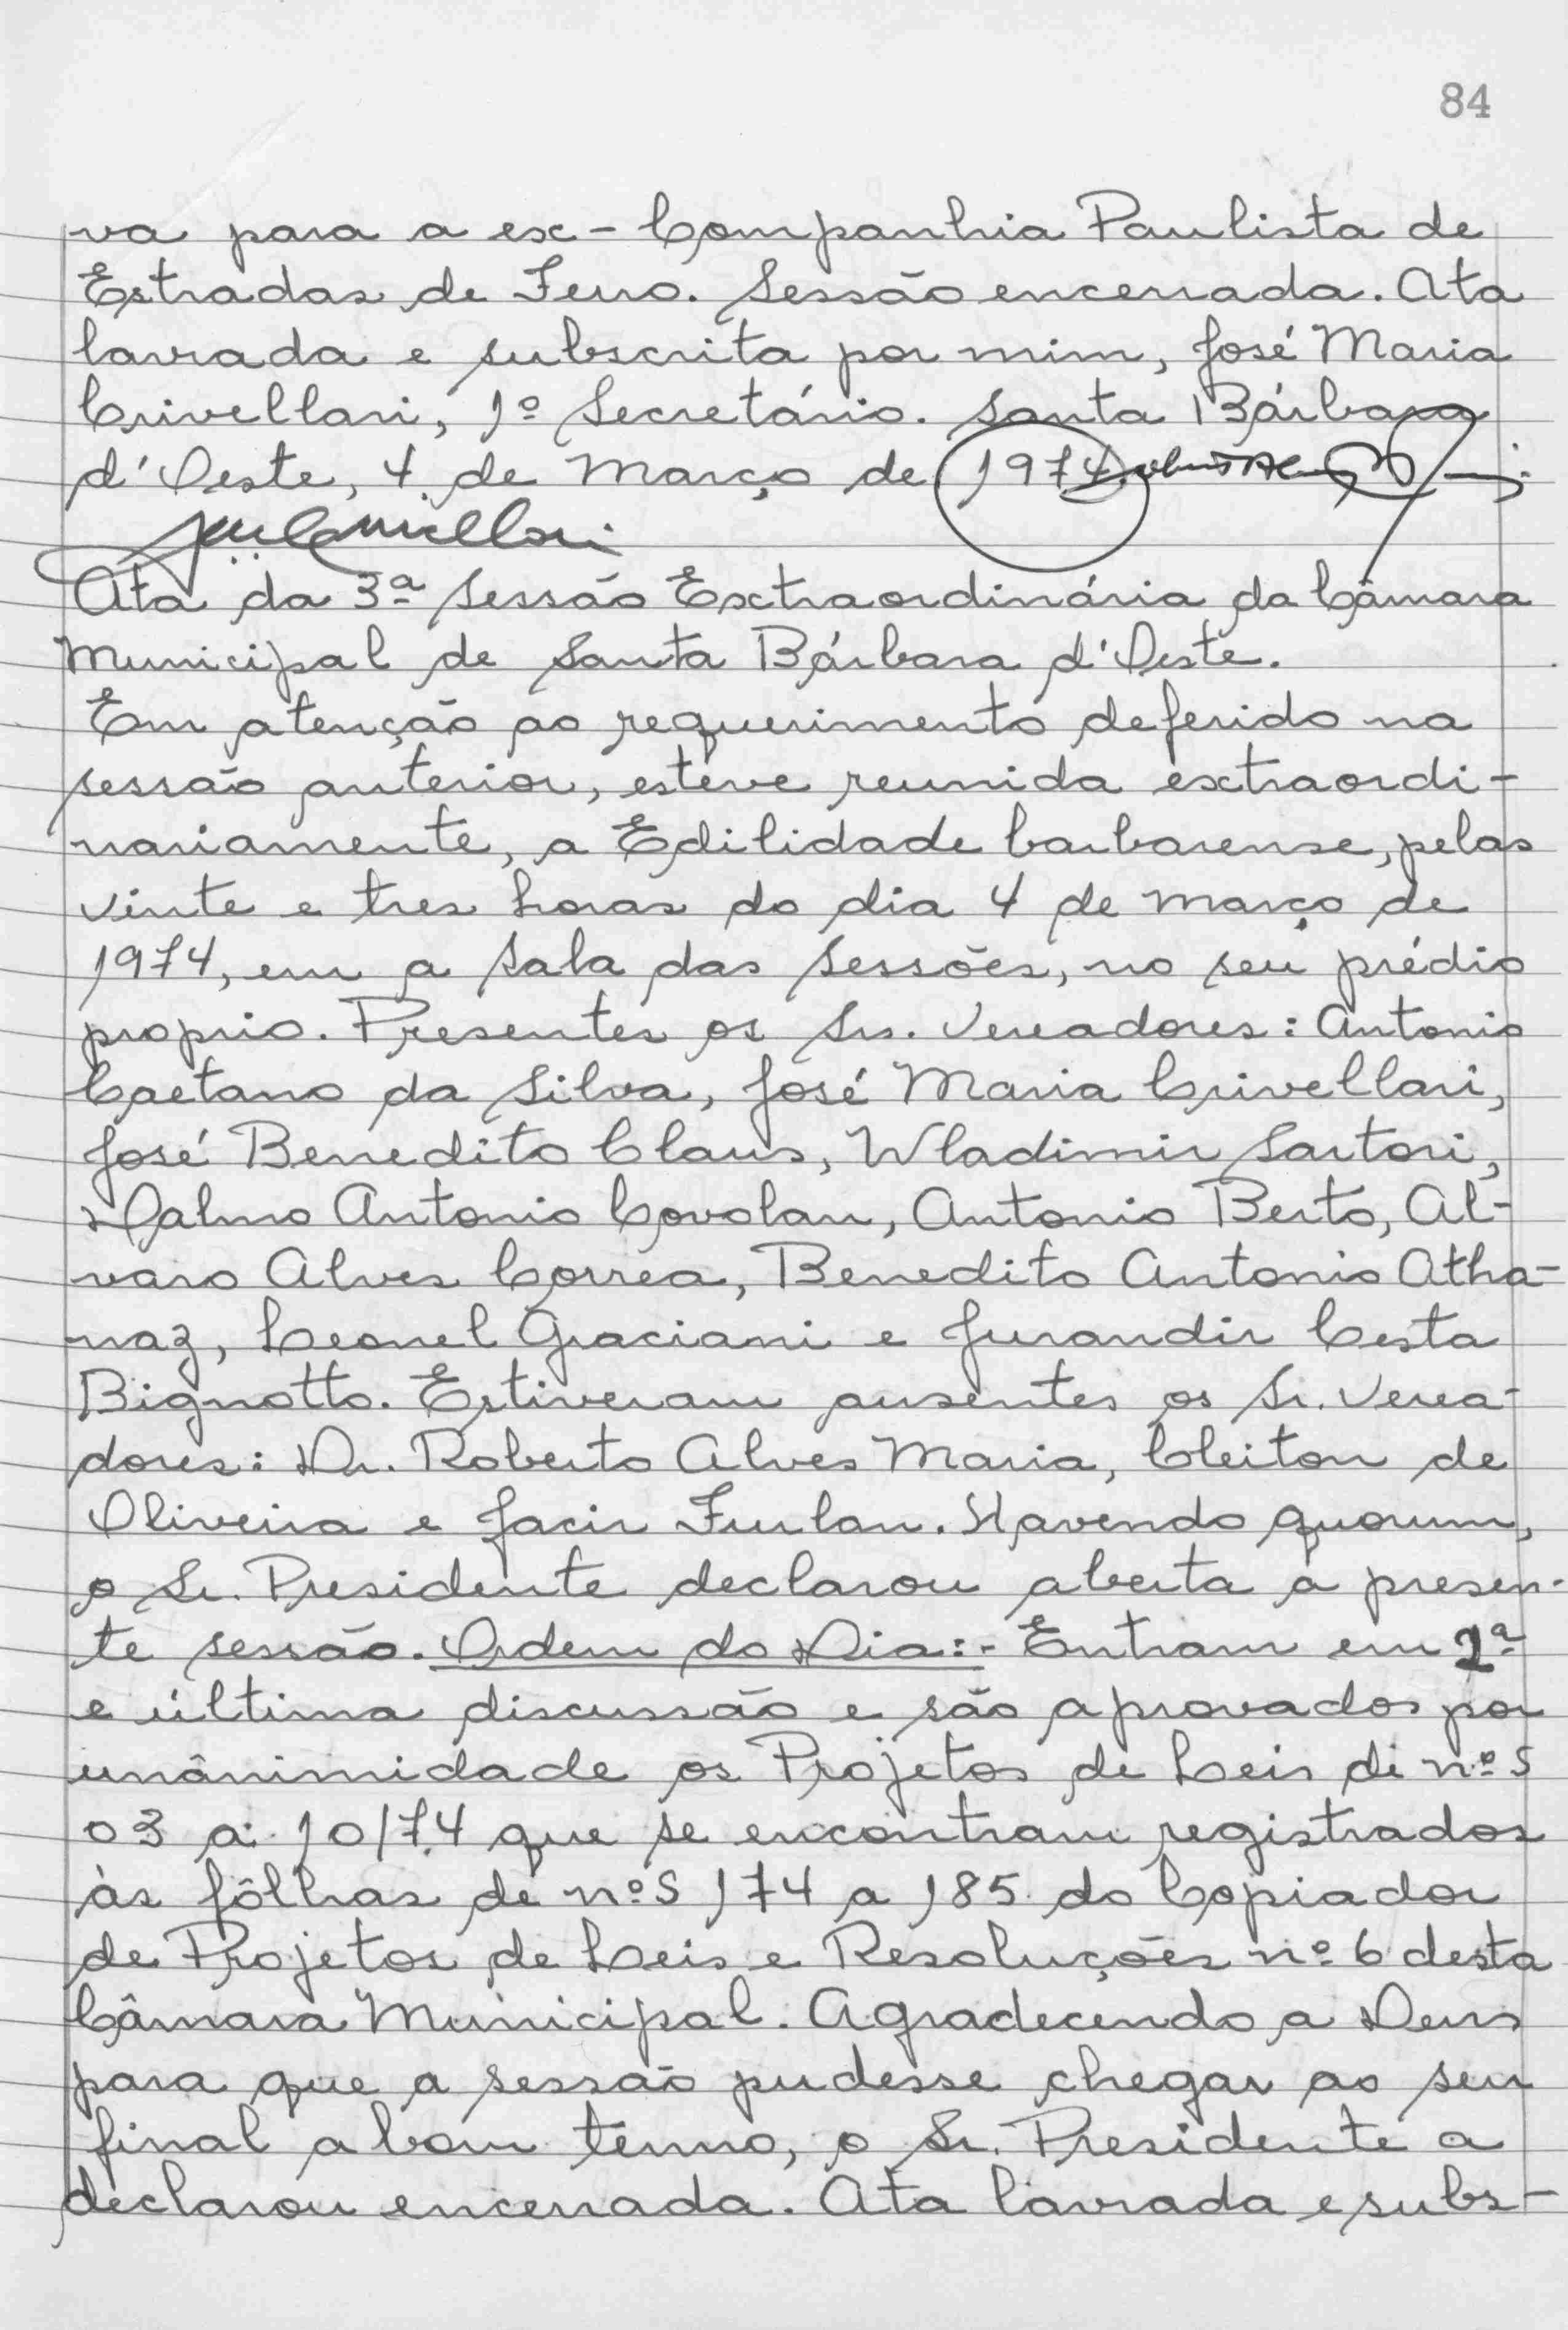 84
va para a ex-Companhia Paulista de
Estradas de Ferro. Sessão encerrada. Ata
lavrada e subscrita por mim, José Maria
Crivellari, 1º Secretário. Santa Bárbara
d'Oeste, 4 de Março de 1974
Ata da 3ª Sessão Extraordinária da Câmara
Municipal de Santa Bárbara d'Oeste.
Em atenção ao requerimento deferido na
sessão anterior, esteve reunida extraordi-
nariamente, a Edilidade barbarense, pelas
vinte e tres horas do dia 4 de março de
1974, em a Sala das Sessões, no seu prédio
proprio. Presentes os Srs. Vereadores: Antonio
Caetano da Silva, José Maria Crivellari,
José Benedito Claus, Wladimir Sartori,
Dalmo Antonio Covolan, Antonio Berto, Al-
varo Alves Correa, Benedito Antonio Atha-
naz, Leonel Graciani e Jurandir Cesta
Bignotto. Estiveram ausentes os Sr. Verea-
dores: Dr. Roberto Alves Maria, Cleiton de
Oliveira e Jacir Furlan. Havendo quorum,
o Sr. Presidente declarou aberta a presen-
te sessão. Ordem do Dia:- Entram em 2ª
e última discussão e são aprovados por
unânimidade os Projetos de Leis di nºs
03 a 10/74 que se encontram registrados
às fôlhas de nºs 174 a 185 do Copiador
de Projetos de Leis e Resoluções nº 6 desta
Câmara Municipal. Agradecendo a Deus
para que a sessão pudesse chegar ao seu
final a bom termo, o Sr. Presidente a
declarou encerrada. Ata lavrada e subs-